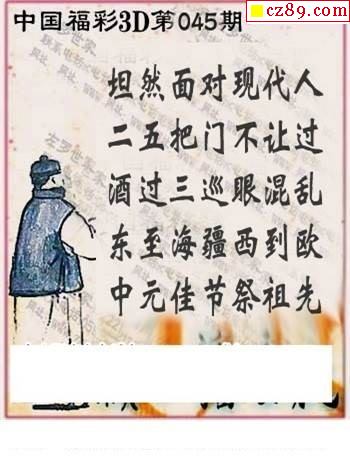 cz89.com
中国福彩3D第045期
坦然面对现代人
二五把门不让过
酒过三巡眼混乱
东至海疆西到欧
中元佳节祭祖先